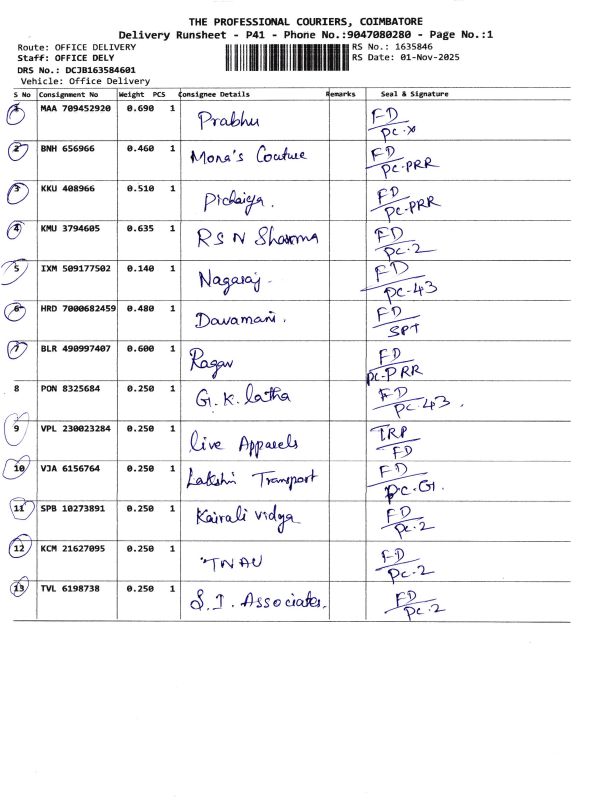 THE PROFESSIONAL COURIERS, COIMBATORE
Delivery Runsheet - P41 - Phone No.:9047080280 - Page No.:1
Route: OFFICE DELIVERY RS No.: 1635846
Staff: OFFICE DELY RS Date: 01-Nov-2025
DRS No.: DCJB163584601
Vehicle: Office Delivery
S No Consignment No Weight PCS Consignee Details Remarks Seal & Signature
1 MAA 709452920 0.690 1 Prabhu FD
PC-X
2 BNH 656966 0.460 1 Mona's Couture FD
PC-PRR
3 KKU 408966 0.510 1 Pichaiya. FD
PC-PRR
4 KMU 3794605 0.635 1 RSN Sharma FD
PC-2
5 IXM 509177502 0.140 1 Nagaraj. FD
PC-43
6 HRD 7000682459 0.480 1 Davamani. FD
SPT
7 BLR 490997407 0.600 1 Ragav FD
PC-PRR
8 PON 8325684 0.250 1 G.K. latha FD
PC-43.
9 VPL 230023284 0.250 1 live Apparels TRP
FD
10 VJA 6156764 0.250 1 Lakshmi Transport FD
PC-G.
11 SPB 10273891 0.250 1 Kairali vidya FD
PC-2
12 KCM 21627095 0.250 1 TNAU FD
PC-2
13 TVL 6198738 0.250 1 S.I. Associates. FD
PC-2